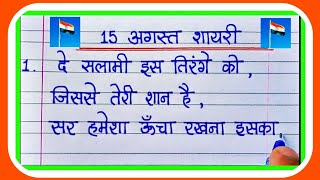 15 अगस्त शायरी
1. दे सलामी इस तिरंगे को,
जिससे तेरी शान है,
सर हमेशा ऊँचा रखना इसका